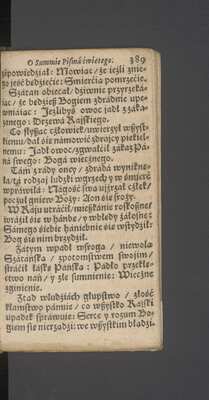 O Summie Pisma świetego. 389
zipowiedział: Mowiąc / że ieśli zne-
go ieść bedziecie: Smiercią pomrzecie.
Szatan obiecał / dziwnie przyrzeka-
iąc / że bedzieß Bogiem zdradnie upe-
wniaiąc: Jezlibyś owoc iadł zzaka-
znego: Drzewá Rayskiego.
Co słyßąc człowiek / uwierzył wßyst-
kiemu / dał sie námowić zdraycy piekiel-
nemu: Jadł owoc / zgwałcił zakaz Pá-
ná swego: Bogá wiecznego.
Tám zrády oney / zdradá wynikne-
łá / tá rodzay ludzki wgrzech y w śmierć
wpráwiłá: Nágość swą uyrzał człek /
poczuł gniew Boży: Zon sie sroży.
W Ráiu utráćił / mieszkánie roskoßne /
wráźił sie w háńbe / y wbiedy żáłosne:
Sámego siebie hániebnie sie wstydził:
Bog sie nim brzydził.
Zátym wpadł wsrogą / niewolą
Szátáńską / zpotomstwem swoim /
strácił łáske Páńską: Pádło przekle-
ctwo nań / y złe sumnienie: Wieczne
zginienie.
Ztąd wludziách głupstwo / złość
kłamstwo pánuie / co wßystko Ráyski
upadek spráwuie: Serce y rozum Bo-
giem sie nierządzi: we wßystkim błądzi.